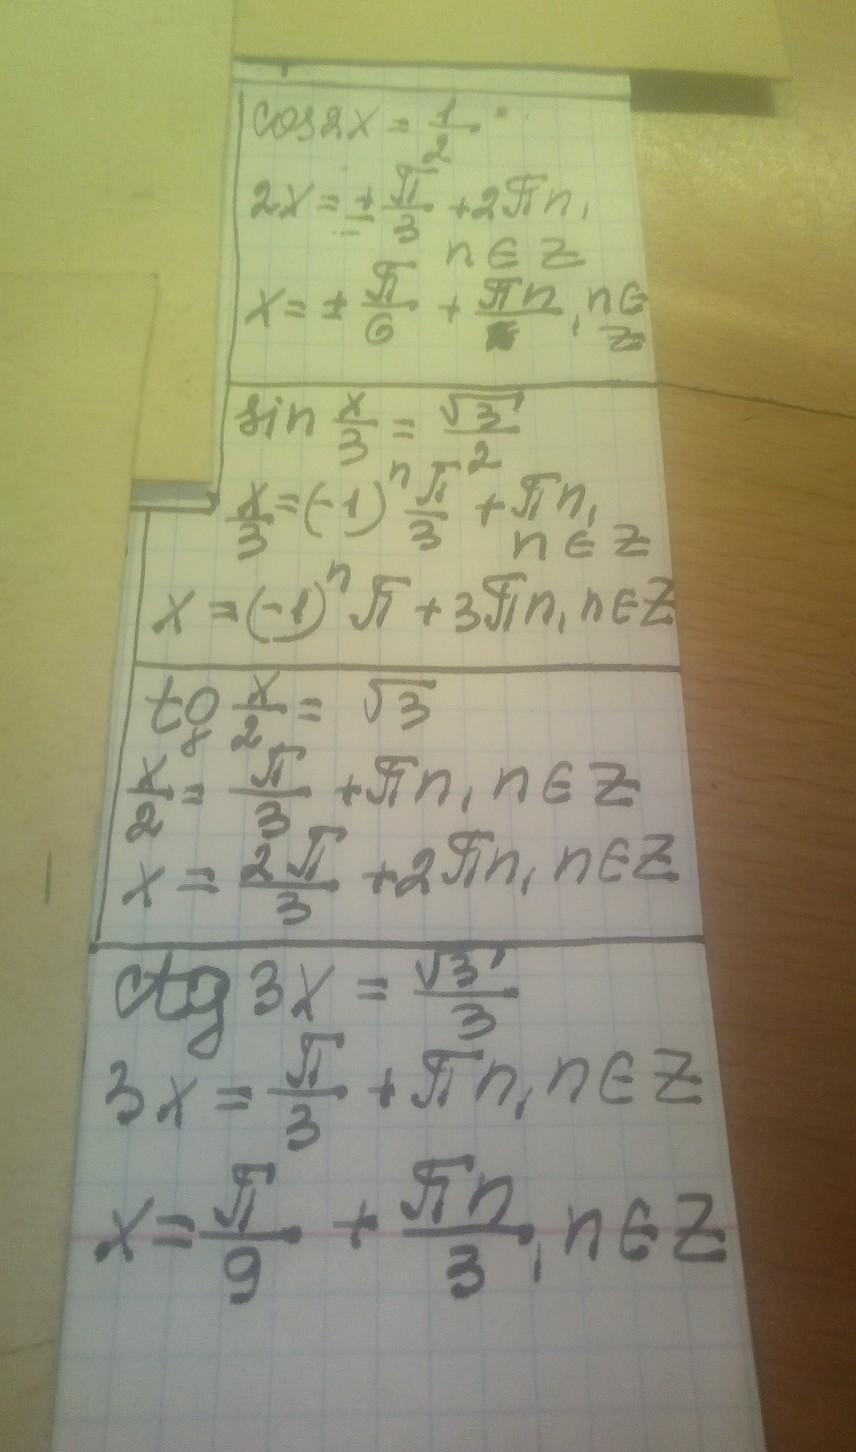 cos2x = 1/2
2x = ± π/3 + 2πn,
n ∈ Z
x = ± π/6 + πn, n ∈
Z
sin x/3 = √3/2
x/3 = (-1)^n π/3 + πn,
n ∈ Z
x = (-1)^n π + 3πn, n ∈ Z
tg x/2 = √3
x/2 = π/3 + πn, n ∈ Z
x = 2π/3 + 2πn, n ∈ Z
ctg 3x = √3/3
3x = π/3 + πn, n ∈ Z
x = π/9 + πn/3, n ∈ Z